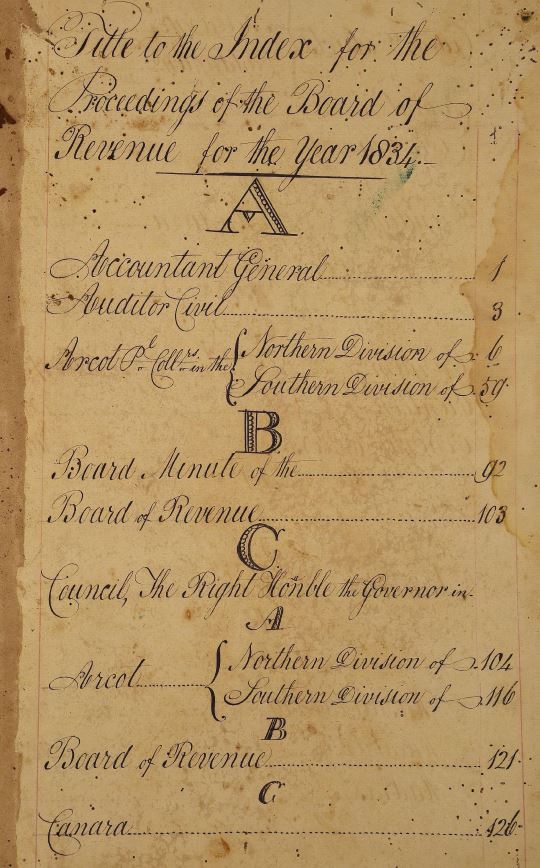 Title to the Index for the
Proceedings of the Board of
Revenue for the Year 1834.
A
Accountant General 1
Auditor Civil 3
Arcot Pl. Collrs. in the { Northern Division of 6
Southern Division of 59
B
Board Minute of the 92
Board of Revenue 103
C
Council, The Right Honble the Governor in
A
Arcot { Northern Division of 104
Southern Division of 116
B
Board of Revenue 121
C
Canara 126